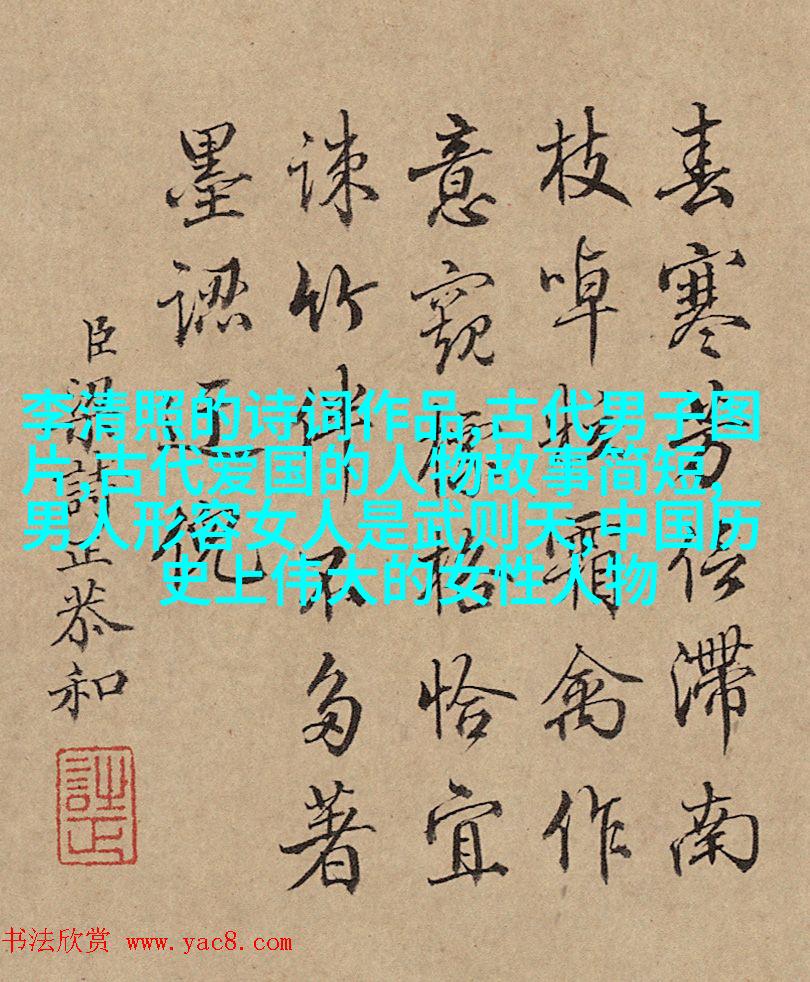 春寒芳信滯南
枝啅霜禽作
意窺格恰宜
疎竹伴不多著
墨認
臣梁詩正恭和
詩正
李清照的诗词作品,古代男子图
片,古代爱国的人物故事简短,
男人形容女人是武则天,中国历
史上伟大的女性人物
书法欣赏 www.yac8.com